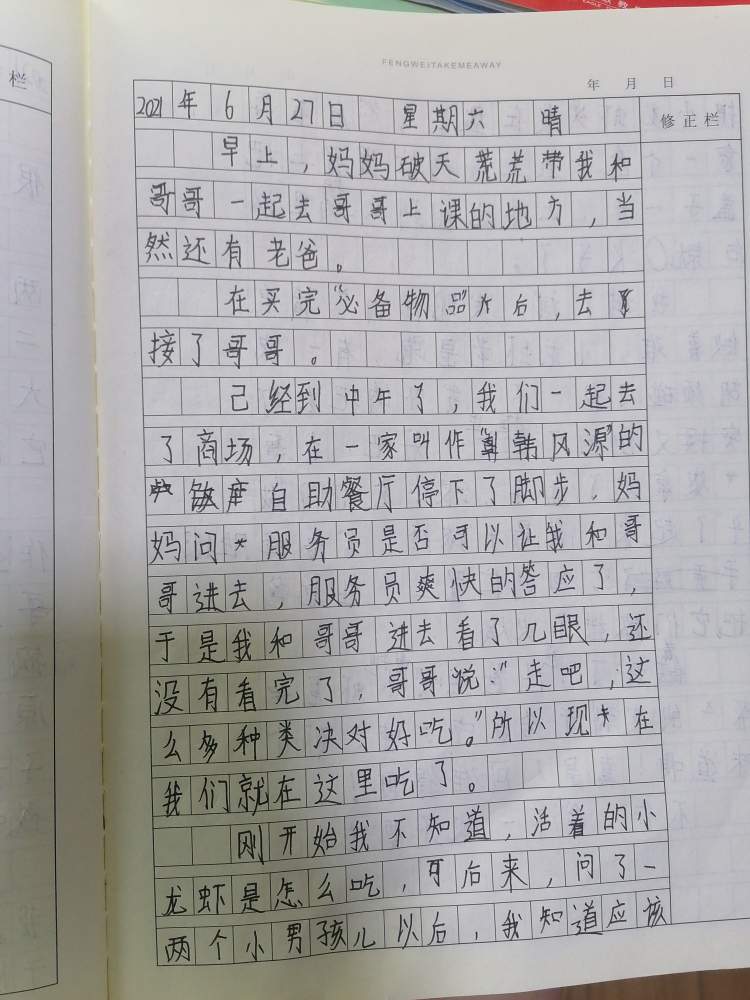 FENGWEITAKEMEAWAY
年 月 日
栏
修正栏
2021年6月27日 星期六 晴
早上，妈妈破天荒荒带我和
哥哥一起去哥哥上课的地方，当
然还有老爸。
在买完“必备物品”后，去
接了哥哥。
己经到中午了，我们一起去
了商场，在一家叫作“韩风源”的
自助餐厅停下了脚步，妈
妈问服务员是否可以让我和哥
哥进去，服务员爽快的答应了，
于是我和哥哥进去看了几眼，还
没有看完了，哥哥说：“走吧，这
么多种类决对好吃。”所以现在
我们就在这里吃了。
刚开始我不知道，活着的小
龙虾是怎么吃，后来，问了一
两个小男孩儿以后，我知道应该